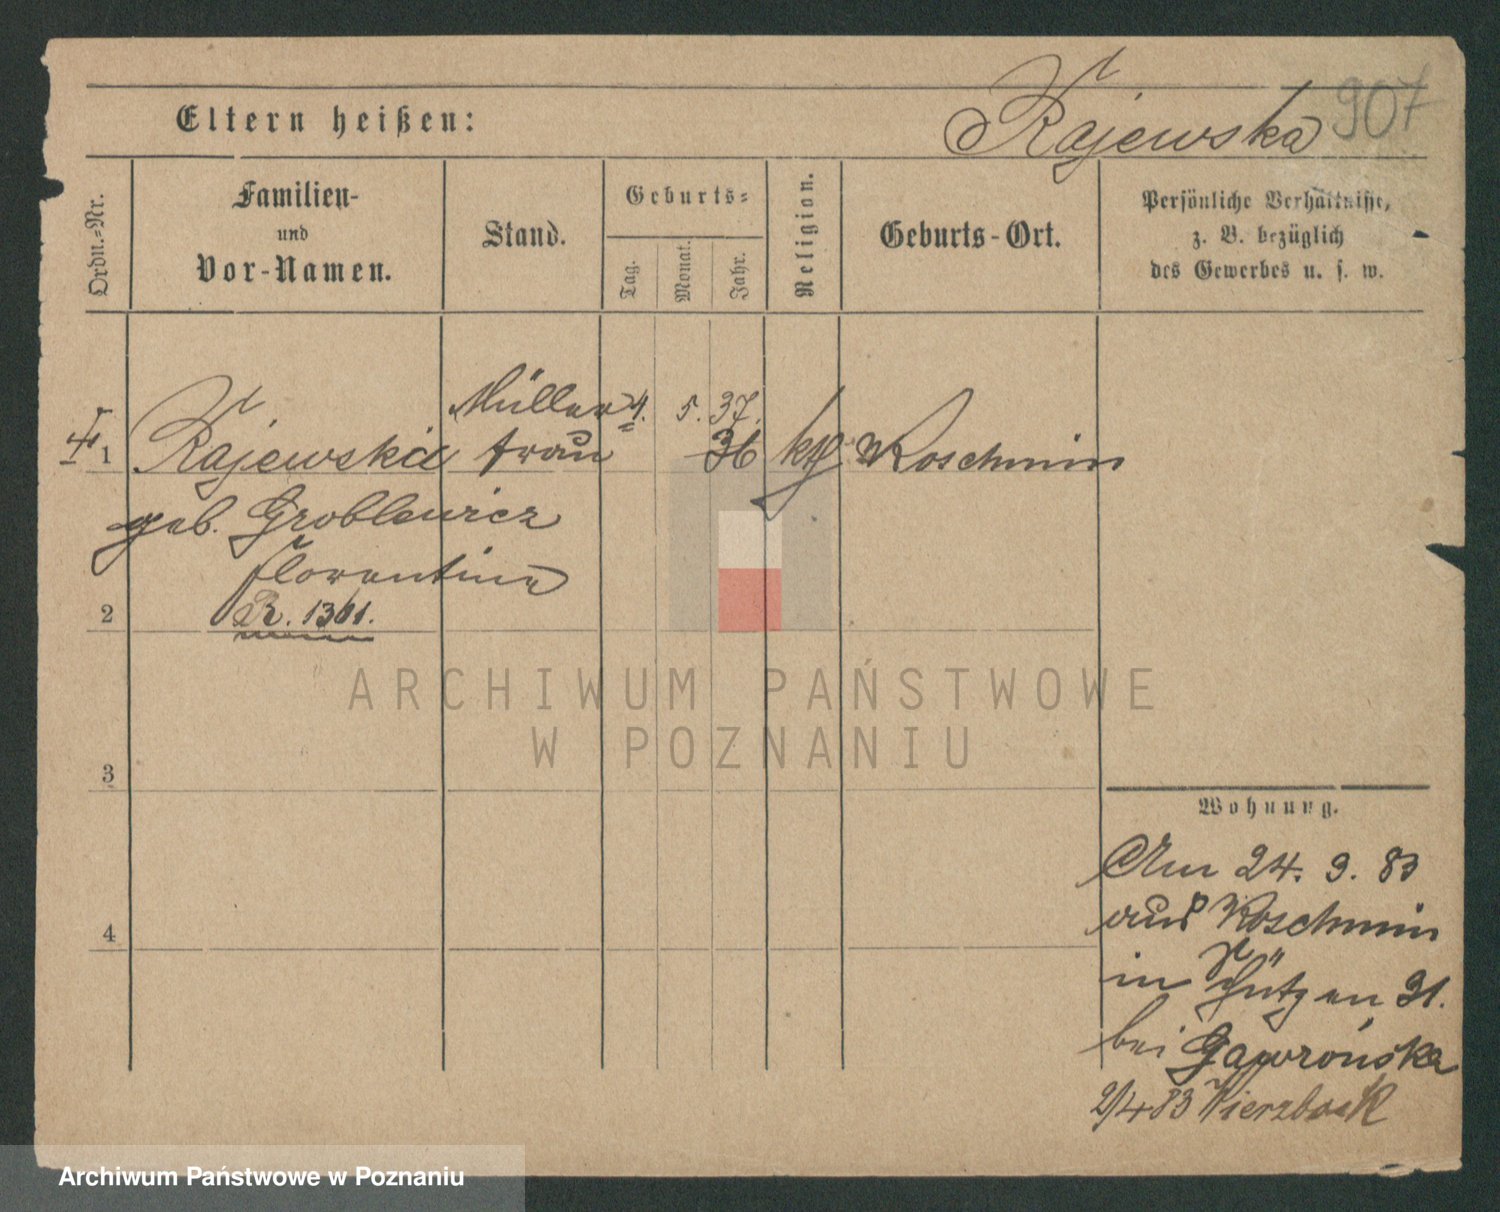 Rajewska 907
Eltern heißen:
Ordn.-Nr.
Familien-
und
Vor-Namen.
Stand.
Geburts-
Tag.
Monat.
Jahr.
Religion.
Geburts-Ort.
Persönliche Verhältnisse,
z. B. bezüglich
des Gewerbes u. s. w.
Müller 4. 5. 37.
1 Rajewska frau 36 kth Koschmin
geb. Groblewicz
Florentine
2 R. 1361.
ARCHIWUM PAŃSTWOWE
W POZNANIU
3
Wohnung.
Am 24. 3. 83
aus Koschmin
4
in Schützen 31.
bei Gawrońska
2/4 83 Kierzbock
Archiwum Państwowe w Poznaniu